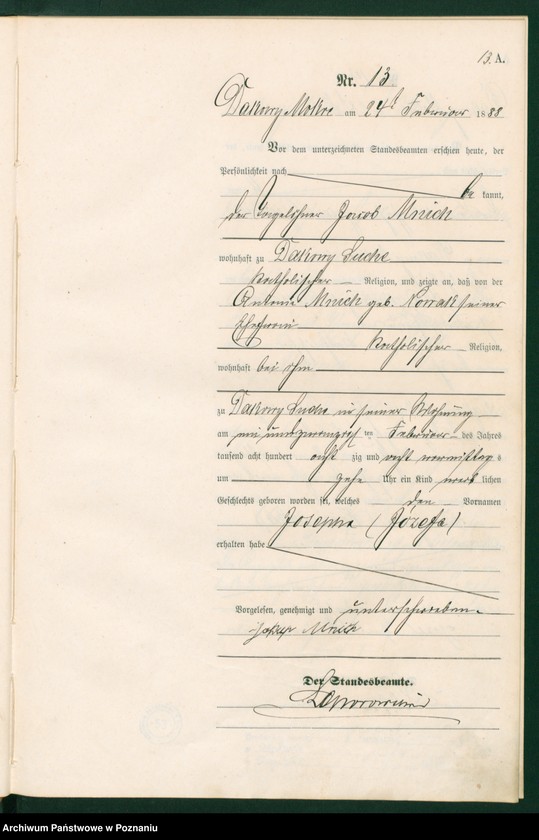 13. A.
Nr. 13.
Dakowy Mokre am 24t Februar 1888
Vor dem unterzeichneten Standesbeamten erschien heute, der
Persönlichkeit nach
be kannt,
der Tagelöhner Jacob Mnich
wohnhaft zu Dakowy Suche
katholischer Religion, und zeigte an, daß von der
Antonie Mnich geb. Nowak seiner
Ehefrau
katholischer Religion,
wohnhaft bei ihm
zu Dakowy Suche in seiner Wohnung
am ein und zwanzigsten Februar des Jahres
tausend acht hundert acht zig und acht vormittags
um zehn Uhr ein Kind weib lichen
Geschlechts geboren worden sei, welches den Vornamen
Josepha (Józefa)
erhalten habe.
Vorgelesen, genehmigt und unterschrieben.
Mnich
Der Standesbeamte.
Archiwum Państwowe w Poznaniu